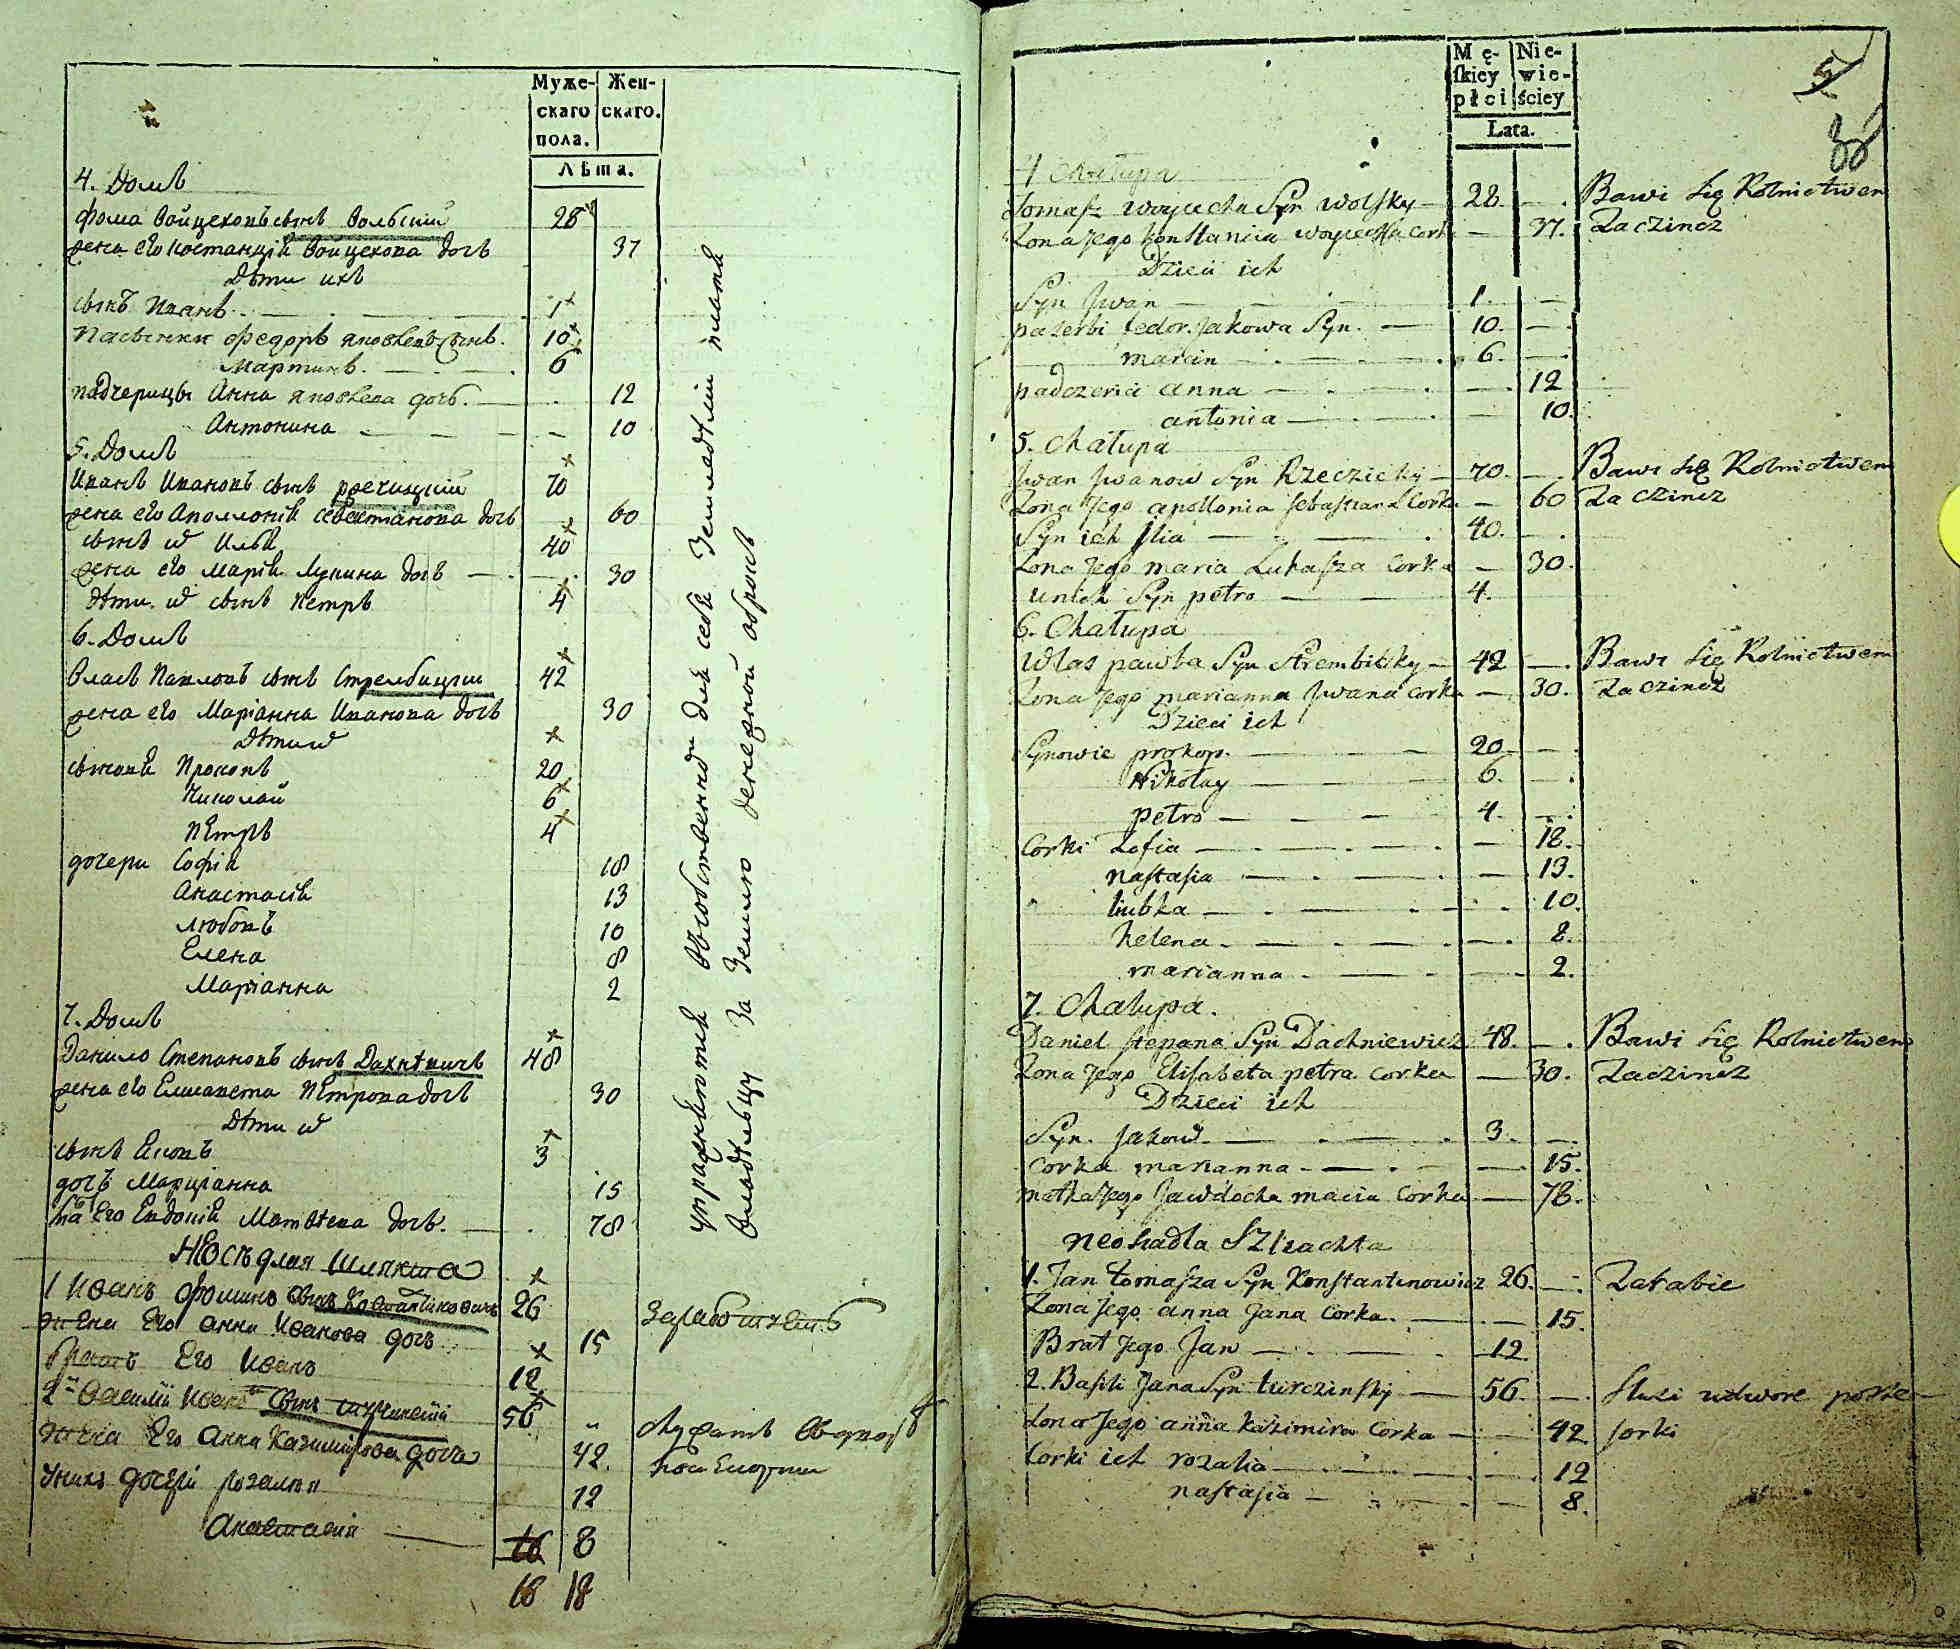 Муже-
скаго
пола.
Жен-
скаго.
Лѣта.
4. Домъ
Фома Войцеховъ сынъ Вольский 28
жена его Костанция Войцехова дочь 37
Дѣти ихъ
сынъ Иванъ 1
Пасынки Федоръ Яковлевъ сынъ. 10
Мартинъ. 6
падчерицы Анна Яковлева дочь. 12
Антонина 10
5. Домъ
Иванъ Ивановъ сынъ Речицкий 70
жена его Аполлония Севастianова дочь 60
сынъ Илья 40
жена его Мария Лукина дочь 30
дѣти сынъ Петръ 4
6. Домъ
Власъ Павловъ сынъ Стрембицкий 42
жена его Маріанна Иванова дочь 30
Дѣти
сыновья Прокопъ 20
Николай 6
Петръ 4
дочери Софія 18
Анастасія 13
Любовъ 10
Елена 8
Маріанна 2
7. Домъ
Данило Степановъ сынъ Дахнѣвичъ 48
жена его Елисавета Петрова дочь 30
Дѣти
сынъ Яковъ 3
дочь Марціанна 15
его Евдокія Матвѣева дочь. 78
Неосѣдлая Шляхта
1 Иванъ Фоминъ сынъ Константиновичъ 26
жена Его Анна Иванова дочь 15
братъ Его Иванъ 12
2й Василій Ивановъ сынъ 56
жена Его Анна Казимирова дочь 42.
Уних дочери Розалія 12
Анастасія 8
16
18 18
упражняются собственно для себя Земледѣлием платя
Владѣльцу За Землю денежной оброкъ
Заработкомъ
Служатъ
Mę-
skiey
płci
Nie-
wie-
ściey
Lata.
5
4 Chałupa
Tomasz woyciecha Syn Wolsky 28. Bawi się Rolnictwem
Zona Jego Konstancia woyciecha Corka 37. Za Czincz
Dzieci ich
Syn Jwan 1.
paserbi fedor. Jakowa Syn. 10.
marcin 6.
padczerici anna 12
antonia 10.
5. Chałupa
Jwan Jwanow Syn Rzeczicky 70. Bawi się Rolnictwem
Zona Jego apollonia sebastiana Corka 60 Za Czincz
Syn ich Jlia 40.
Zona Jego maria Lukasza Corka 30.
unich Syn petro 4.
6. Chałupa
Wlas pawla Syn Strembicky 42 Bawi się Rolnictwem
Zona Jego marianna Jwana Corka 30. Za Czincz
Dzieci ich
Synowie prokop. 20
Nikołay 6.
petro 4.
Corki Zofia 18.
nastasia 13.
liubka 10.
helena 8.
marianna 2.
7. Chałupa.
Daniel stepana Syn Dachniewicz 48. Bawi się Rolnictwem
Zona Jego Elisabeta petra Corka 30. Za czincz
Dzieci ich
Syn. Jakow 3.
Corka marianna 15.
matka Jego Jawdocha macia Corka 78.
neosiadła Szlachta
1. Jan tomasza Syn Konstantinowicz 26. Zarabie
Zona Jego anna Jana Corka. 15.
Brat Jego Jan 12
2. Basili Jana Syn turczinsky 56. Służi udwore
Zona Jego anna Kazimira Corka 42
Corki ich rozalia 12
nastasia 8.